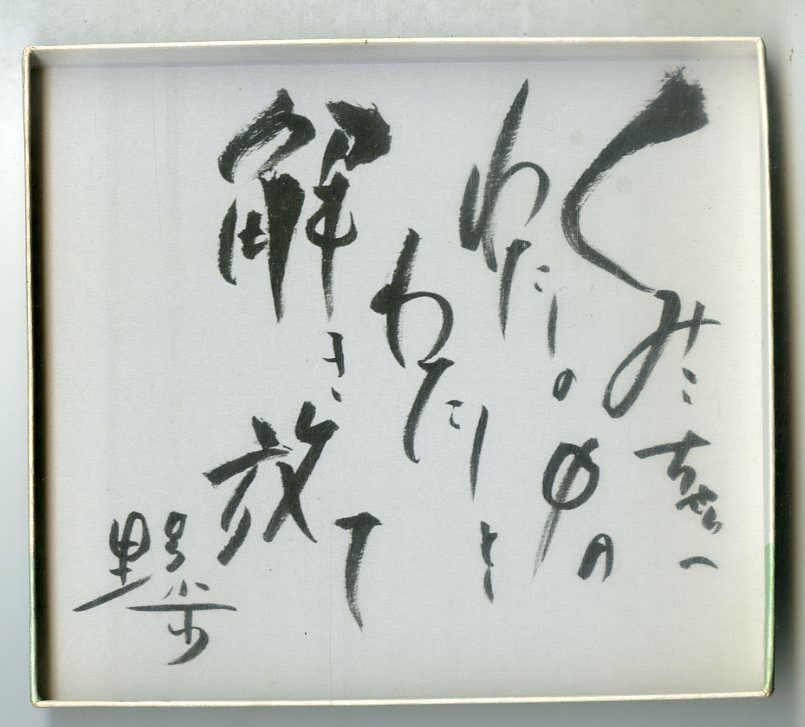 くみこちゃんへ
わたしの中の
わたしを
解き放て
野歩